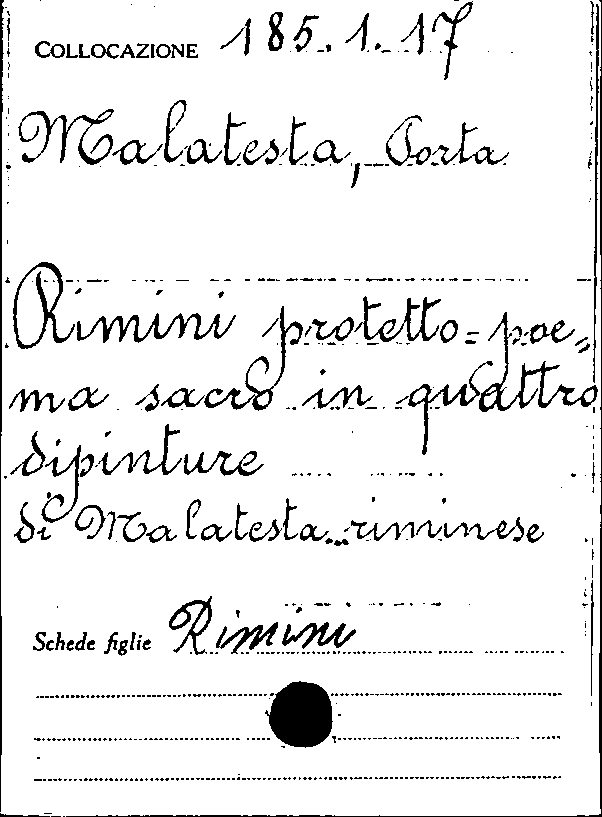 COLLOCAZIONE 185.1.17
Malatesta, Porta
Rimini protetto=poe„
ma sacro in quattro
dipinture
di Malatesta riminese
Schede figlie Rimini